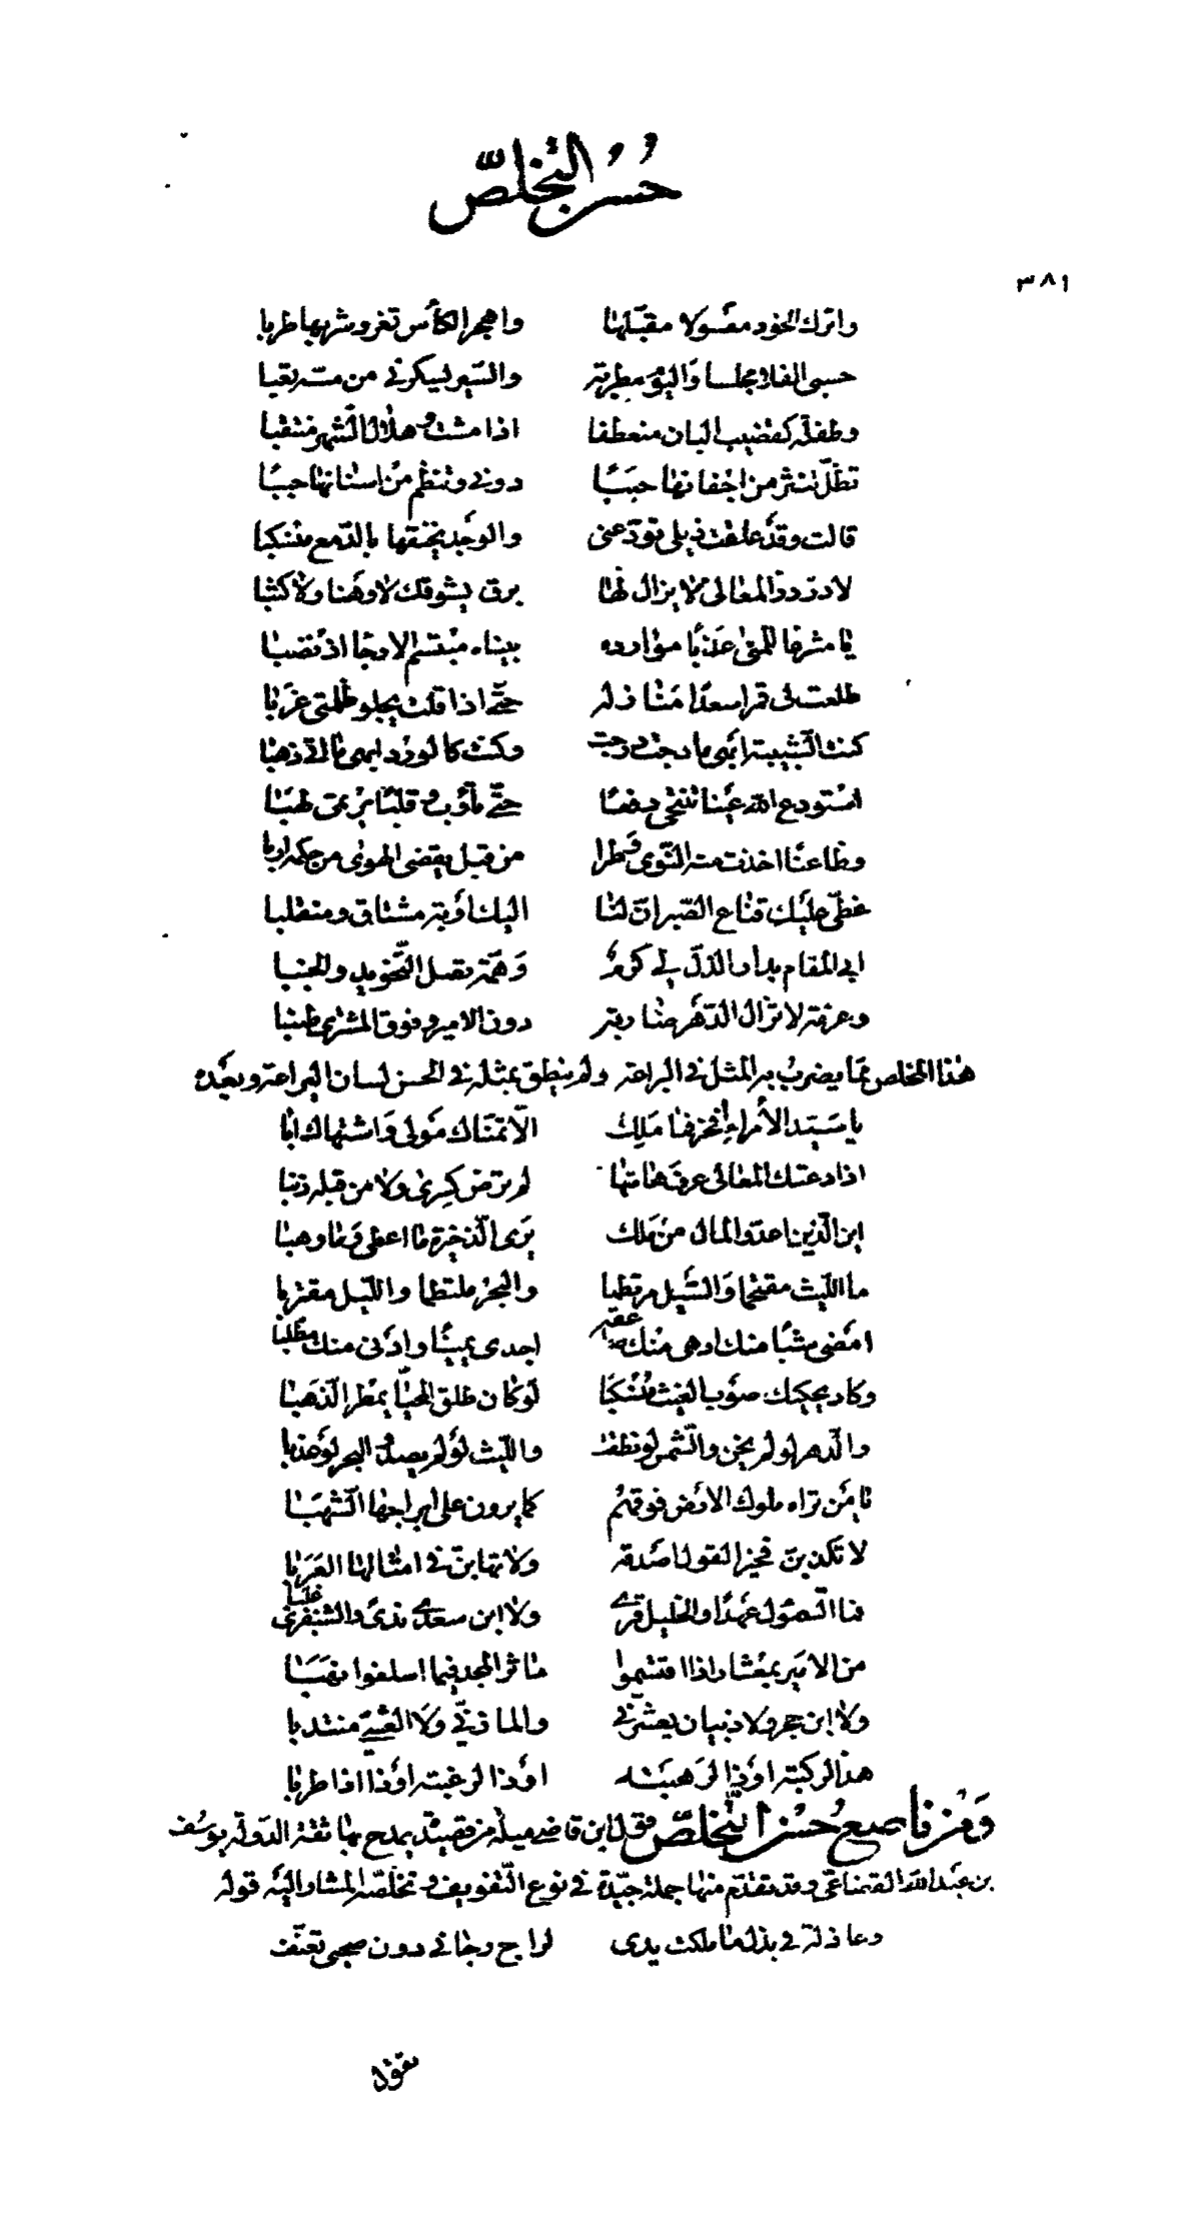 حُسْن التخلّص
٣٨١
واترك الخود معسولا مقبّلها واهجر الكأس تغرو شربها طربا
حسبي الفلا مجلسا والبوم مطربة والسير ليسكرني من مسه تعبا
وطفلة كقضيب البان منعطفا اذا مشت وهلال الشهر منتقبا
تظلّ تنثر من اجفانها حببًا دوني وتنظم من اسنانها حببًا
قالت وقد علقت ذيلي تودعني والوجد يخنقها بالدّمع منسكبا
لا درّ درّ المعالي لا يزال لها برق يشوقك لا وهنا ولا كثبا
يا مشرعا للمنى عذبًا موارده بيناه مبتسم الارجا اذ نضبا
طلعت لي قمرا سعدًا منازله حتّى اذا قلت يجلو ظلمتي غربا
كنت الشبيبة ابهى ما دجت درجت وكنت كالورد ابهى ما اتى ذهبا
استودع الله عينا تنتحي دفعًا حتّى تؤب وقلبًا يرتمي لهبًا
وظاعنًا اخذت منه النّوى وطرا من قبل يقضي الهوى من حكمه اربا
غطّي عليك قناع الصّبر انّ لنا اليك اوبة مشتاق ومنقلبا
ابى المقام بدار الذلّ لي كرم وهمّة تصل التّخويد والخببا
وعزمة لا تزال الدّهر ضاربة دون الامير وفوق المشتري طنبا
هذا المخلص ممّا يضرب به المثل في البراعة ولم ينطق بمثله في الحسن لسان اليراعة وبعده
يا سيّد الأمراء افخر فما ملك الّا تمنّاك مولى واشتهاك ابا
اذا دعتك المعالي عرف هامتها لم ترض كسرى ولا من قبله ذنبا
اين الّذين اعدّوا المال من ملك يرى الذّخيرة ما اعطى وما وهبا
ما اللّيث مقتحما والسّيل مرتطما والبحر ملتطما واللّيل مقتربا
امضى شبًا منك ادهى منك صاعقة اجدى يمينًا وادنى منك مطّلبا
وكاد يحكيك صوب الغيث منسكبا لو كان طلق المحيّا يمطر الذّهبا
والدّهر لو لم يخن والشّمس لو نطقت واللّيث لو لم يصد والبحر لو عذبا
يا من تراه ملوك الارض فوقهم كما يرون على ابراجها الشّهبا
لا تكذبنّ فخير القول اصدقه ولا تهابنّ في امثالها العربا
فما السّموأل عهدًا والخليل قرى ولا ابن سعدى ندى والشنفرى غلبا
من الامير بمعشار اذا اقتسموا مآثر المجد فيما اسلفوا نهبا
ولا ابن حجر ولا ذبيان يعشرني والمازنيّ ولا القيسيّ منتدبا
هذا لركبته او ذا لرهبته او ذا لرغبته او ذا اذا طربا
ومن ناصع حسن التّخلّص قول ابن قاضي ميلة من قصيدة يمدح بها ثقة الدّولة يوسف
بن عبد الله القضاعي وقد تقدّم منها جملة جيّدة في نوع التّفويف وتخلّصه المشار اليه قوله
وعاذلة في بذل ما ملكت يدي لراج رجاني دون صحبي تعنّف
تقول